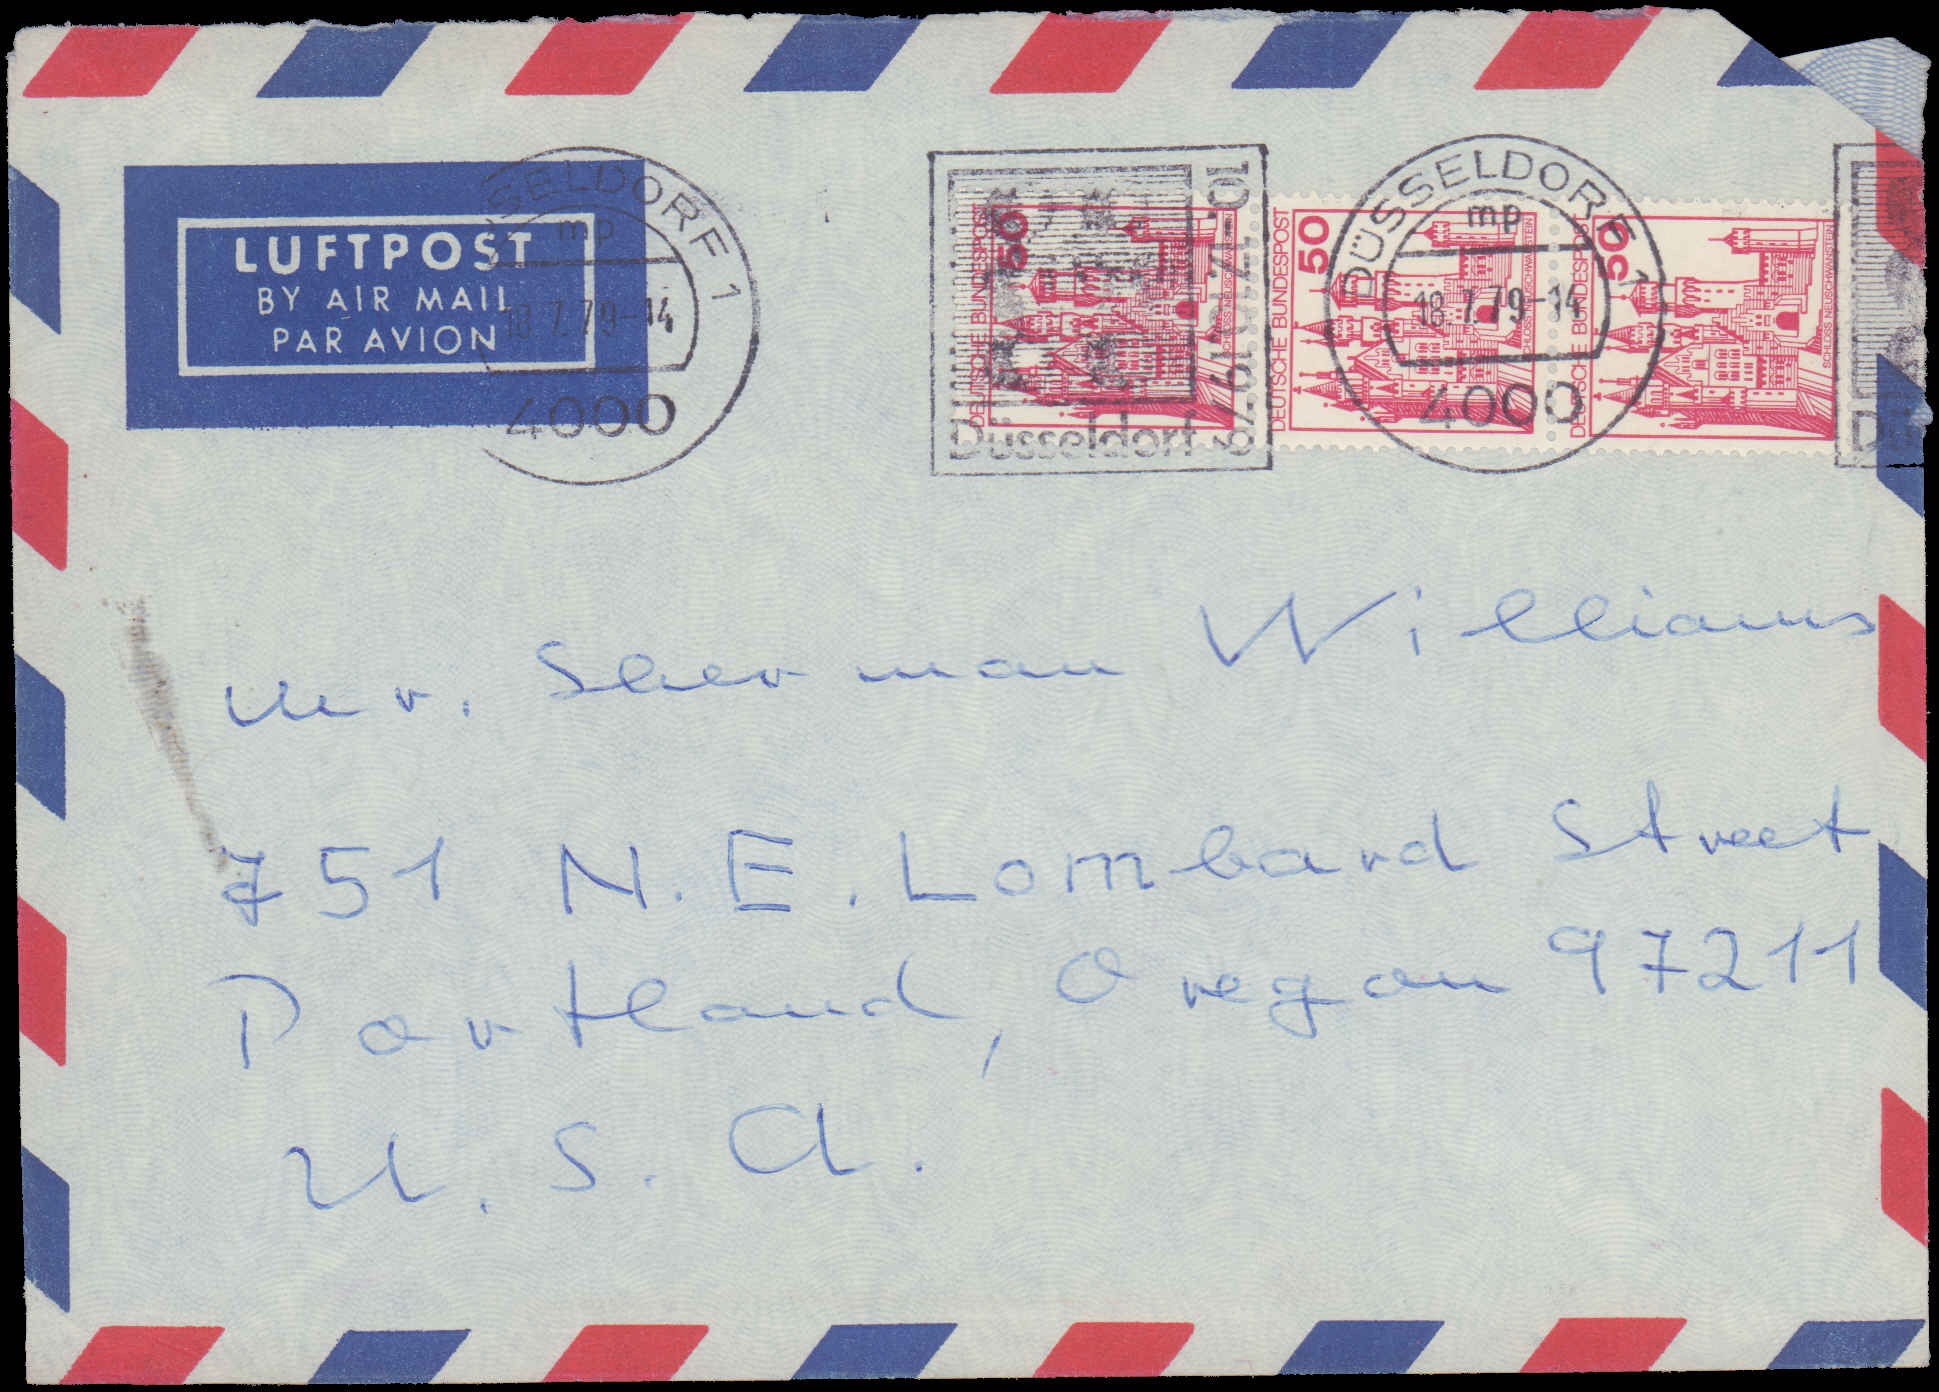 LUFTPOST
BY AIR MAIL
PAR AVION
SSELDORF 1
mp
18.7.79-14
4000
Düsseldorf
10.7.79
50
DEUTSCHE BUNDESPOST
DÜSSELDORF 1
mp
18.7.79-14
4000
50
DEUTSCHE BUNDESPOST
SCHLOSS NEUSCHWANSTEIN
50
DEUTSCHE BUNDESPOST
SCHLOSS NEUSCHWANSTEIN
Dü
Mr. Sherman Williams
751 N.E. Lombard Street
Portland, Oregon 97211
U.S.A.